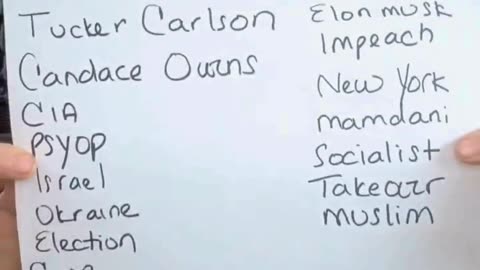 Tucker Carlson
Candace Owens
CIA
PSYOP
Israel
Ukraine
Election
Elon musk
Impeach
New York
mamdani
Socialist
Takeover
muslim